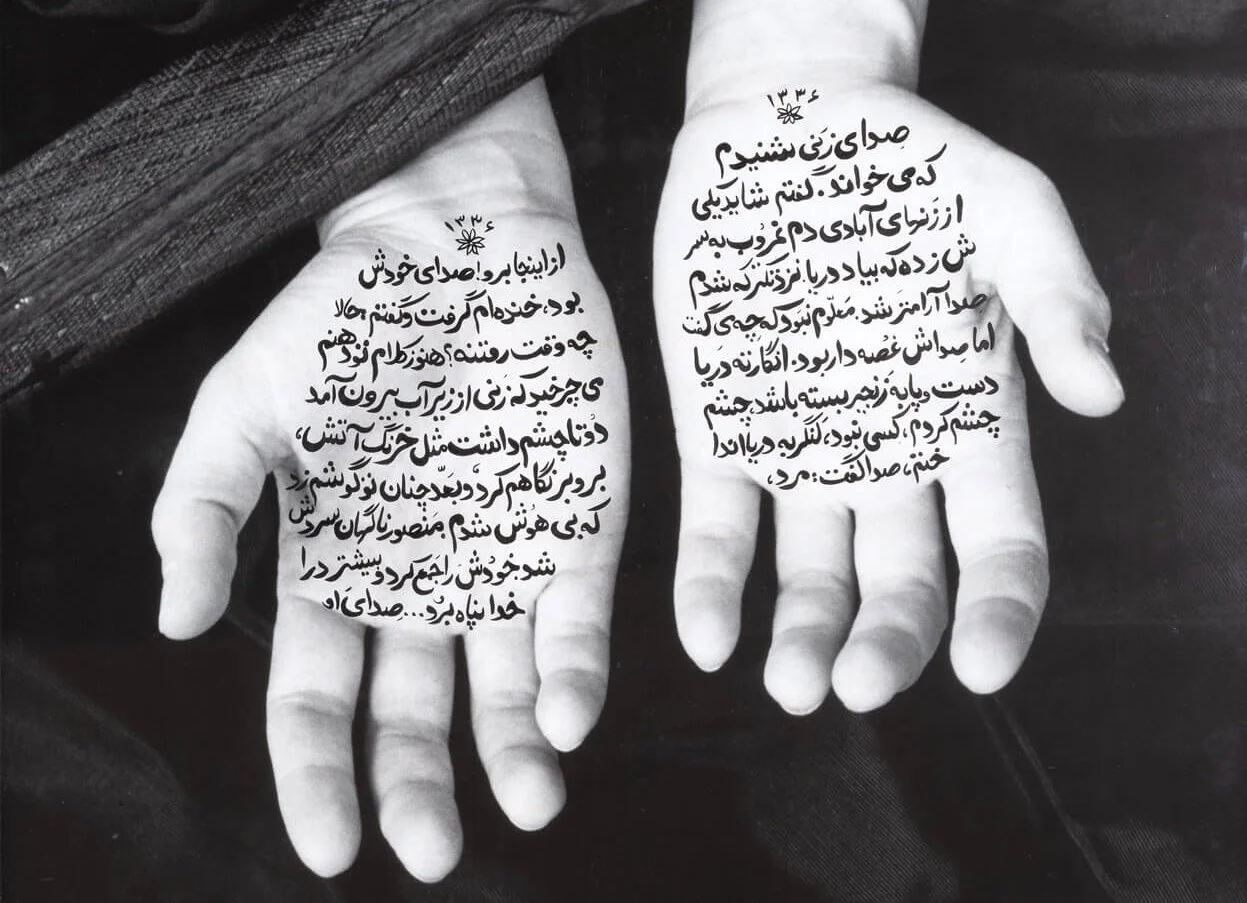 ۱۳۳۶
صدای زنی شنیدم
که می خواند. گفتم شاید یکی
از زنهای آبادی دم غروب به سر
ش زده که بیاد دریا. نزدیکتر که شدم
صدا آرامتر شد. معلوم نبود که چه می گفت
اما صداش غصه دار بود. انگار ته دریا
دست و پا به زنجیر بسته باشد، چشم
چشم کردم، کسی نبود، لنگر به دریا اندا
ختم، صدا گفت: مرد،
۱۳۳۶
از اینجا برو! صدای خودش
بود، خنده ام گرفت و گفتم حالا
چه وقت رفتنه؟ هنوز کلام تو دهنم
می چرخید که زنی از زیر آب بیرون آمد
دو تا چشم داشت مثل خرنگ آتش،
بر و بر نگاهم کرد و بعد چنان تو گوشم زد
که بی هوش شدم. منصور ناگهان سردش
شد خودش را جمع کرد و بیشتر در را
خدا پناه برد... صدای او